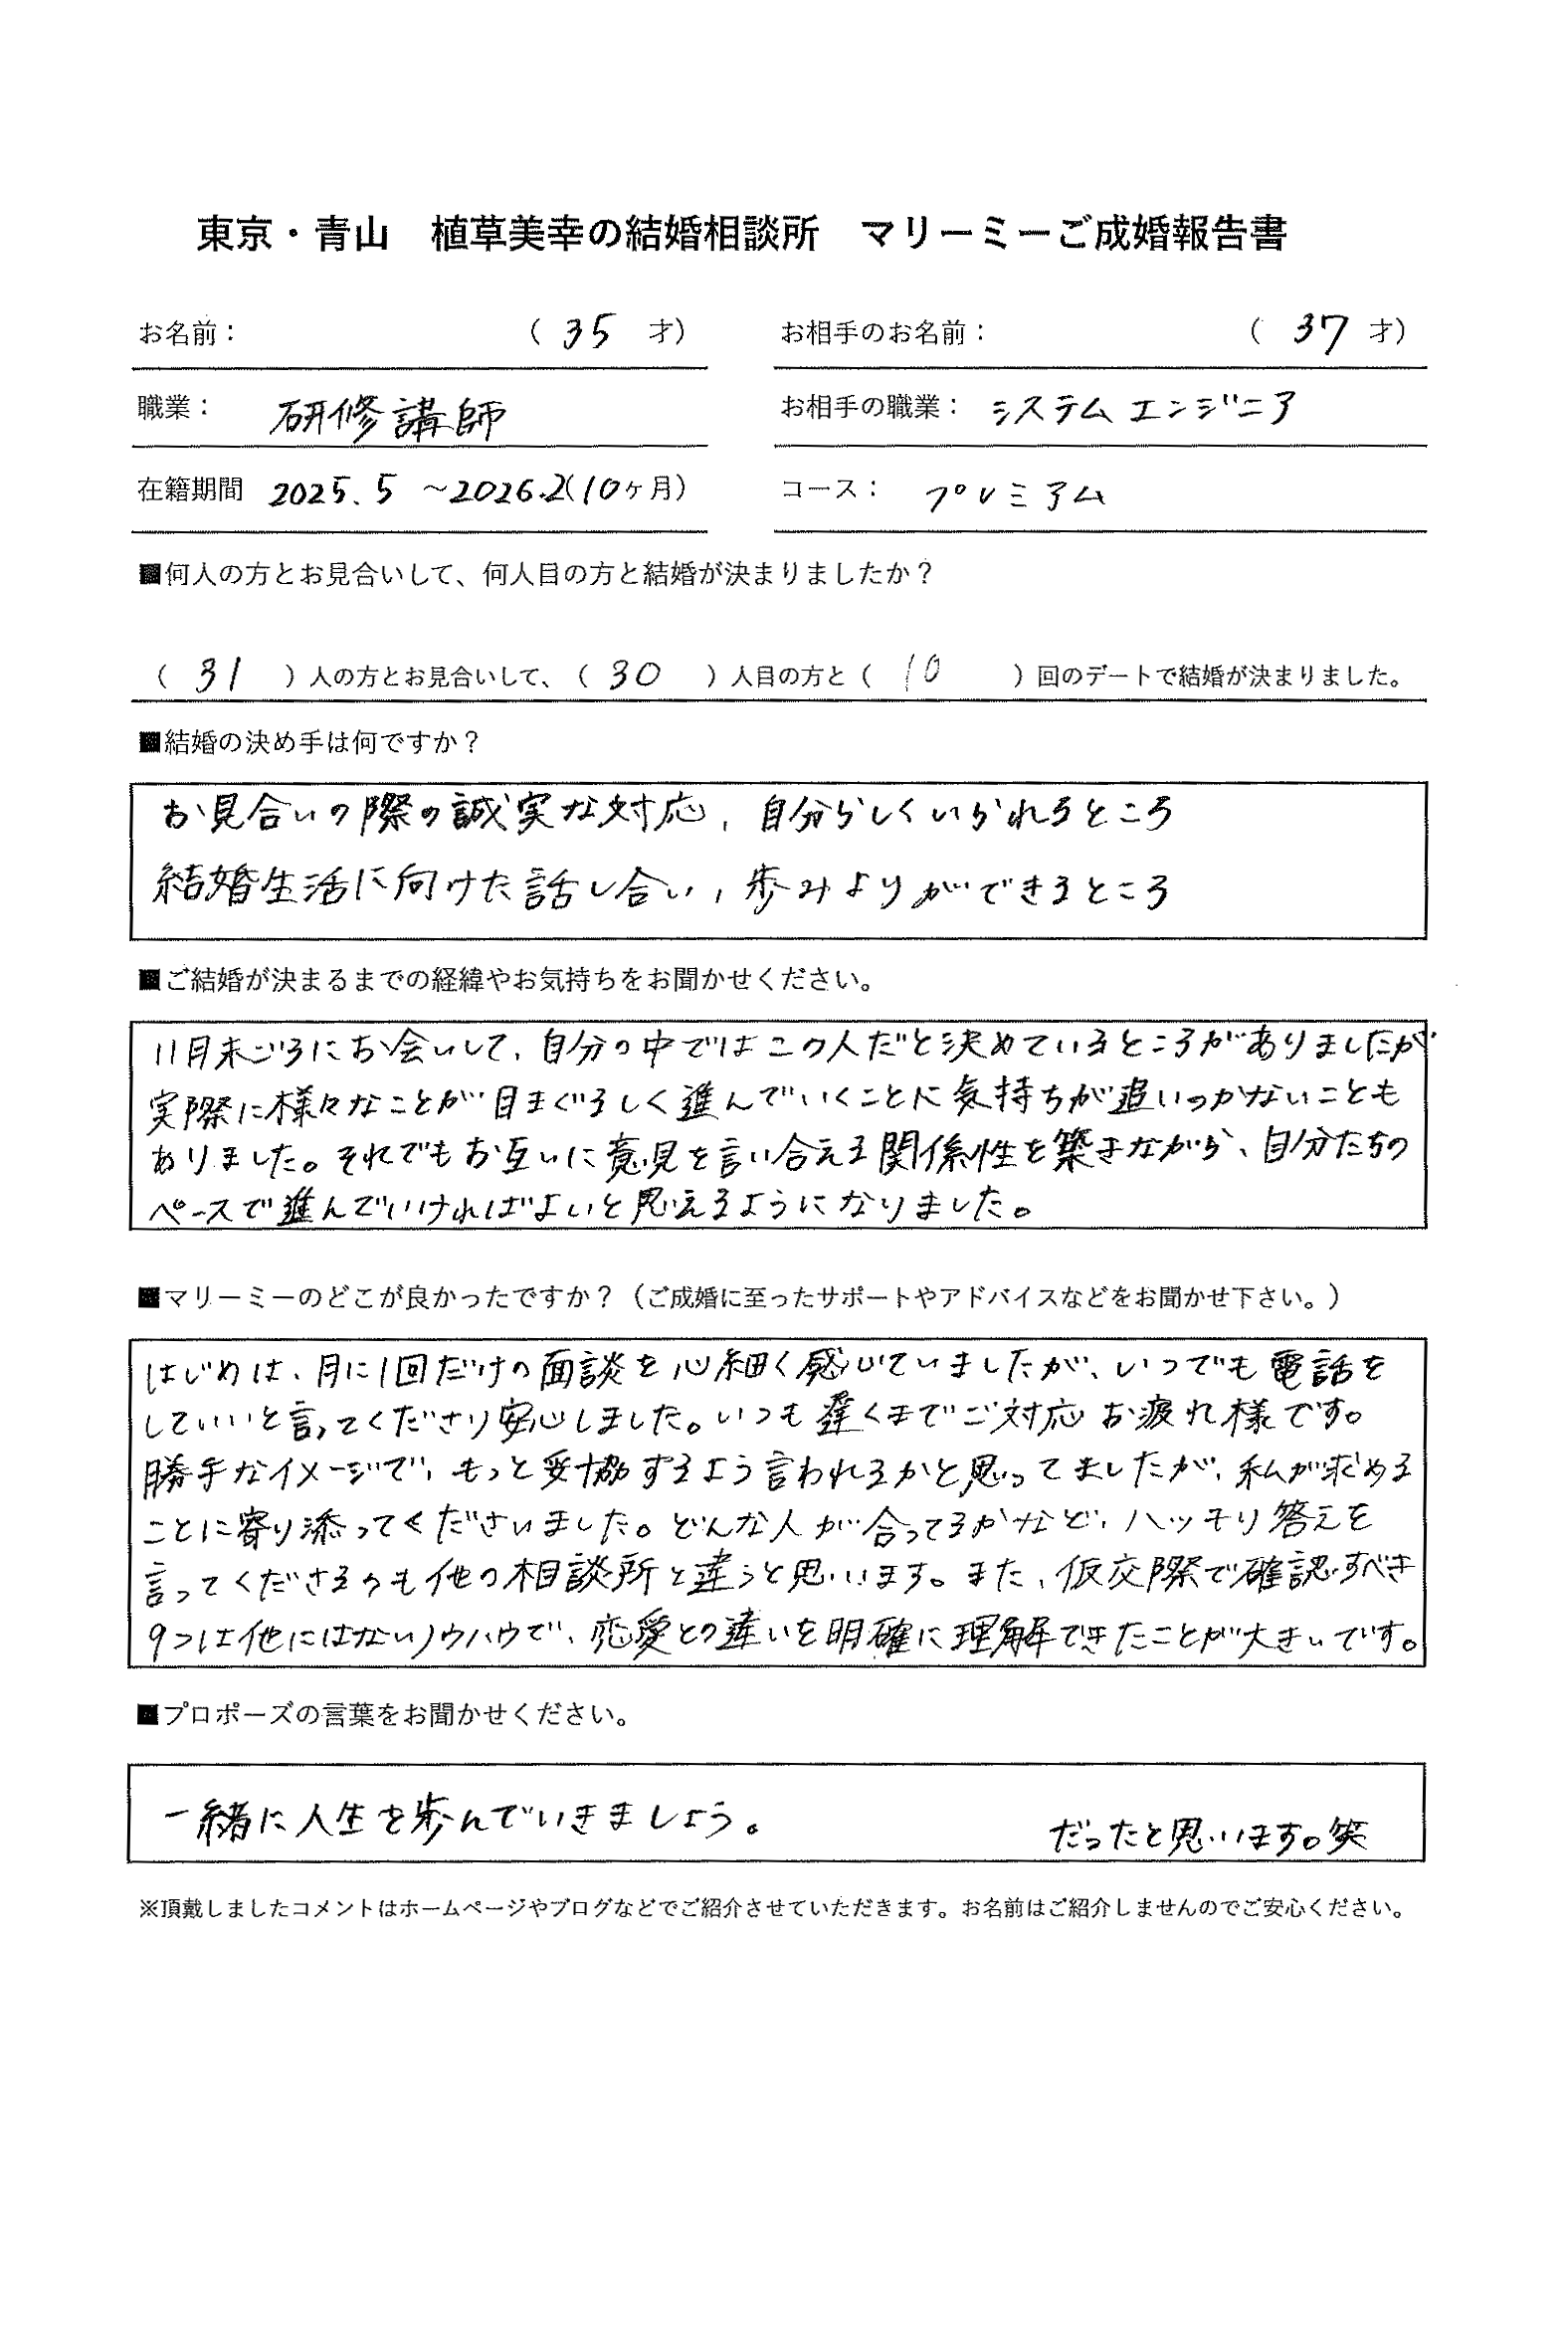 東京・青山　植草美幸の結婚相談所　マリーミーご成婚報告書
お名前：　（ 35 才）　お相手のお名前：　（ 37 才）
職業：　研修講師　お相手の職業：　システムエンジニア
在籍期間　2025.5 ～2026.2（10ヶ月）　コース：　プレミアム
■何人の方とお見合いして、何人目の方と結婚が決まりましたか？
（ 31 ）人の方とお見合いして、（ 30 ）人目の方と（ 10 ）回のデートで結婚が決まりました。
■結婚の決め手は何ですか？
お見合いの際の誠実な対応、自分らしくいられるところ
結婚生活に向けた話し合い、歩みよりができるところ
■ご結婚が決まるまでの経緯やお気持ちをお聞かせください。
11月末ごろにお会いして、自分の中ではこの人だと決めているところがありましたが
実際に様々なことが目まぐるしく進んでいくことに気持ちが追いつかないことも
ありました。それでもお互いに意見を言い合える関係性を築きながら、自分たちの
ペースで進んでいければよいと思えるようになりました。
■マリーミーのどこが良かったですか？（ご成婚に至ったサポートやアドバイスなどをお聞かせ下さい。）
はじめは、月に1回だけの面談を心細く感じていましたが、いつでも電話を
していいと言ってくださり安心しました。いつも遅くまでご対応お疲れ様です。
勝手なイメージで、もっと妥協するよう言われるかと思ってましたが、私が求める
ことに寄り添ってくださいました。どんな人が合ってるかなど、ハッキリ答えを
言ってくださるのも他の相談所と違うと思います。また、仮交際で確認すべき
9つは他にはないノウハウで、恋愛との違いを明確に理解できたことが大きいです。
■プロポーズの言葉をお聞かせください。
一緒に人生を歩んでいきましょう。　だったと思います。笑
※頂戴しましたコメントはホームページやブログなどでご紹介させていただきます。お名前はご紹介しませんのでご安心ください。